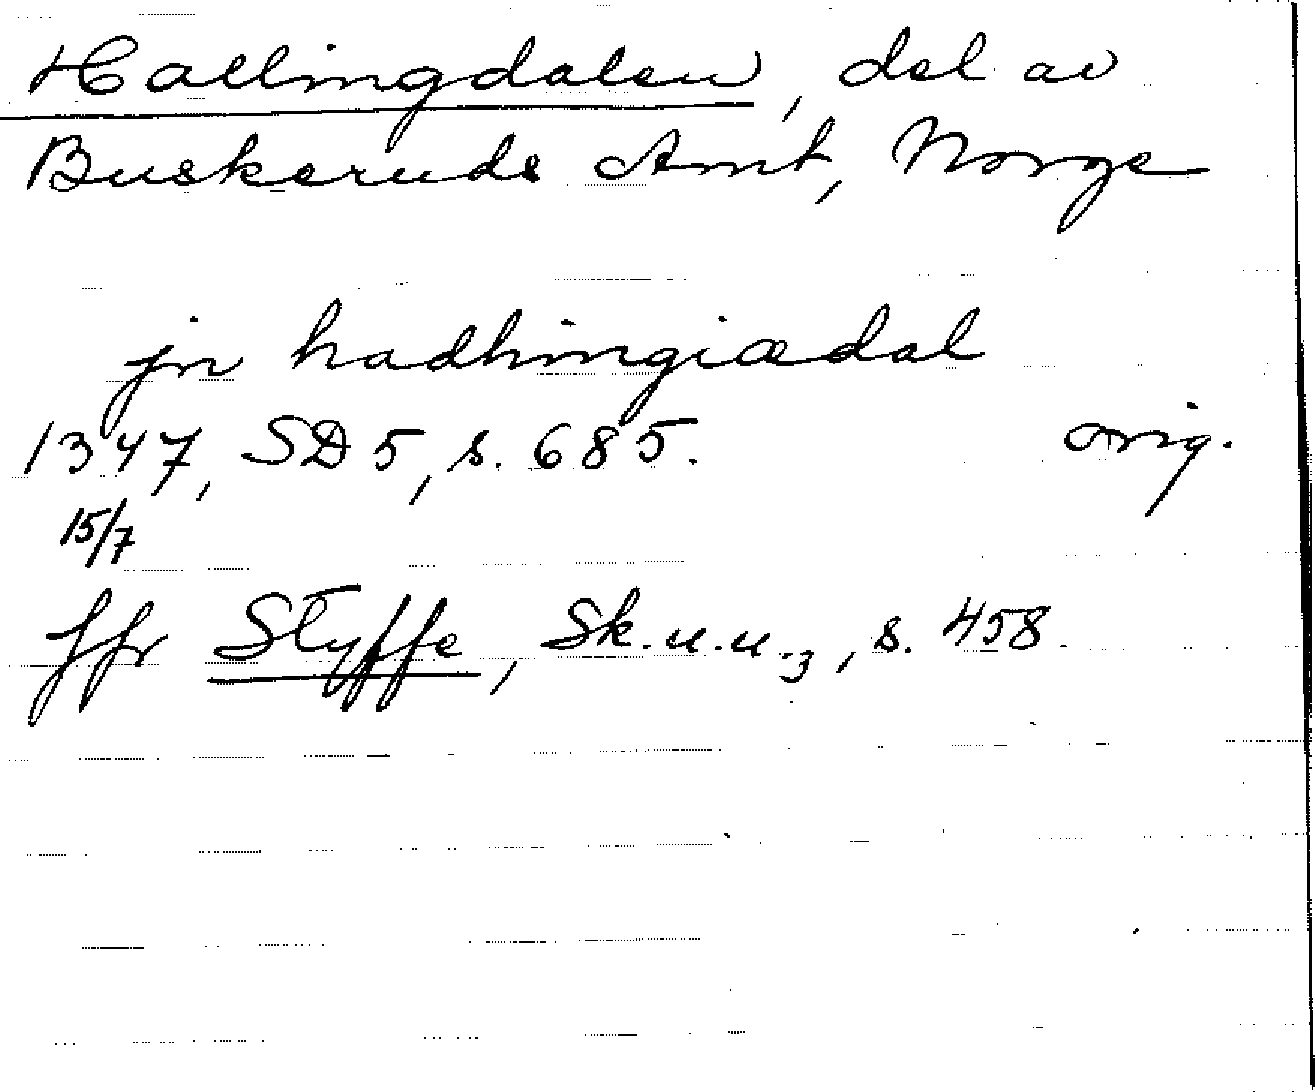 Hallingdalen, del av
Buskeruds Amt, Norge
jn hadhingiædal
1347, SD 5, s. 685. orig.
15/7
Jfr Styffe, Sk.u.u.3, s. 458.